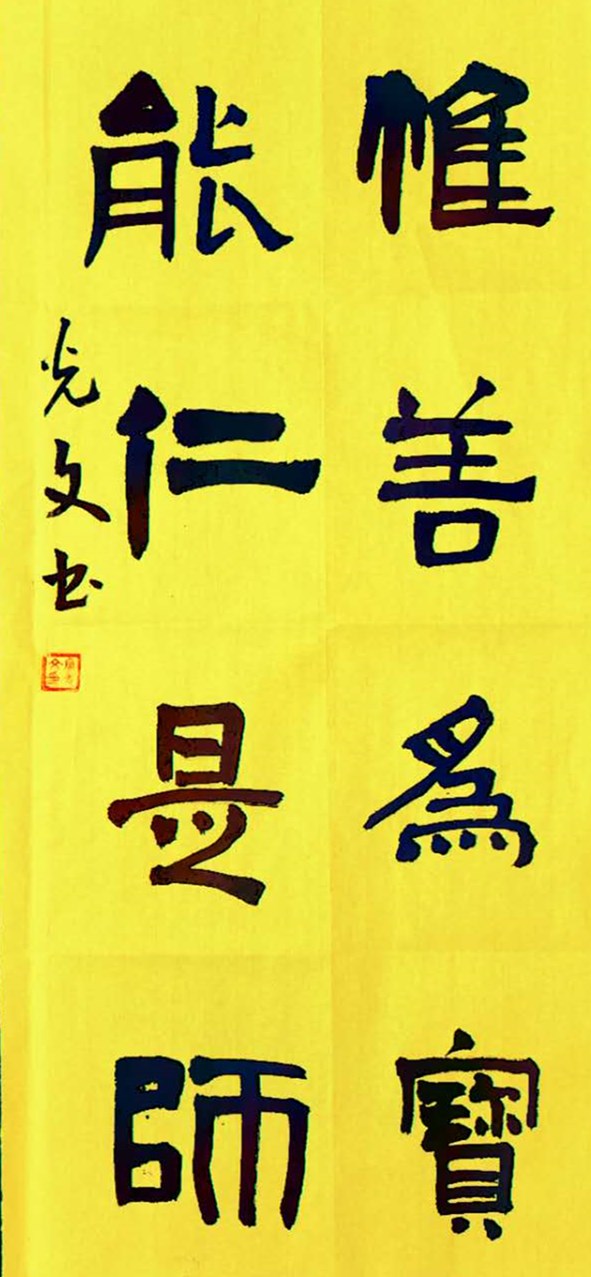 惟善為寶
能仁是師
光文书